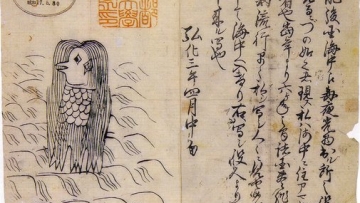 肥後国海中え毎夜光物出ル所之役
づの如く者現ス私ハ海中ニ住ア
者也当年より六ヶ年之間諸国豊作
病流行早々私シ写シ人々ニ見せ候
海中へ入けり右ハ写シ役人より
写也
弘化三年四月中旬